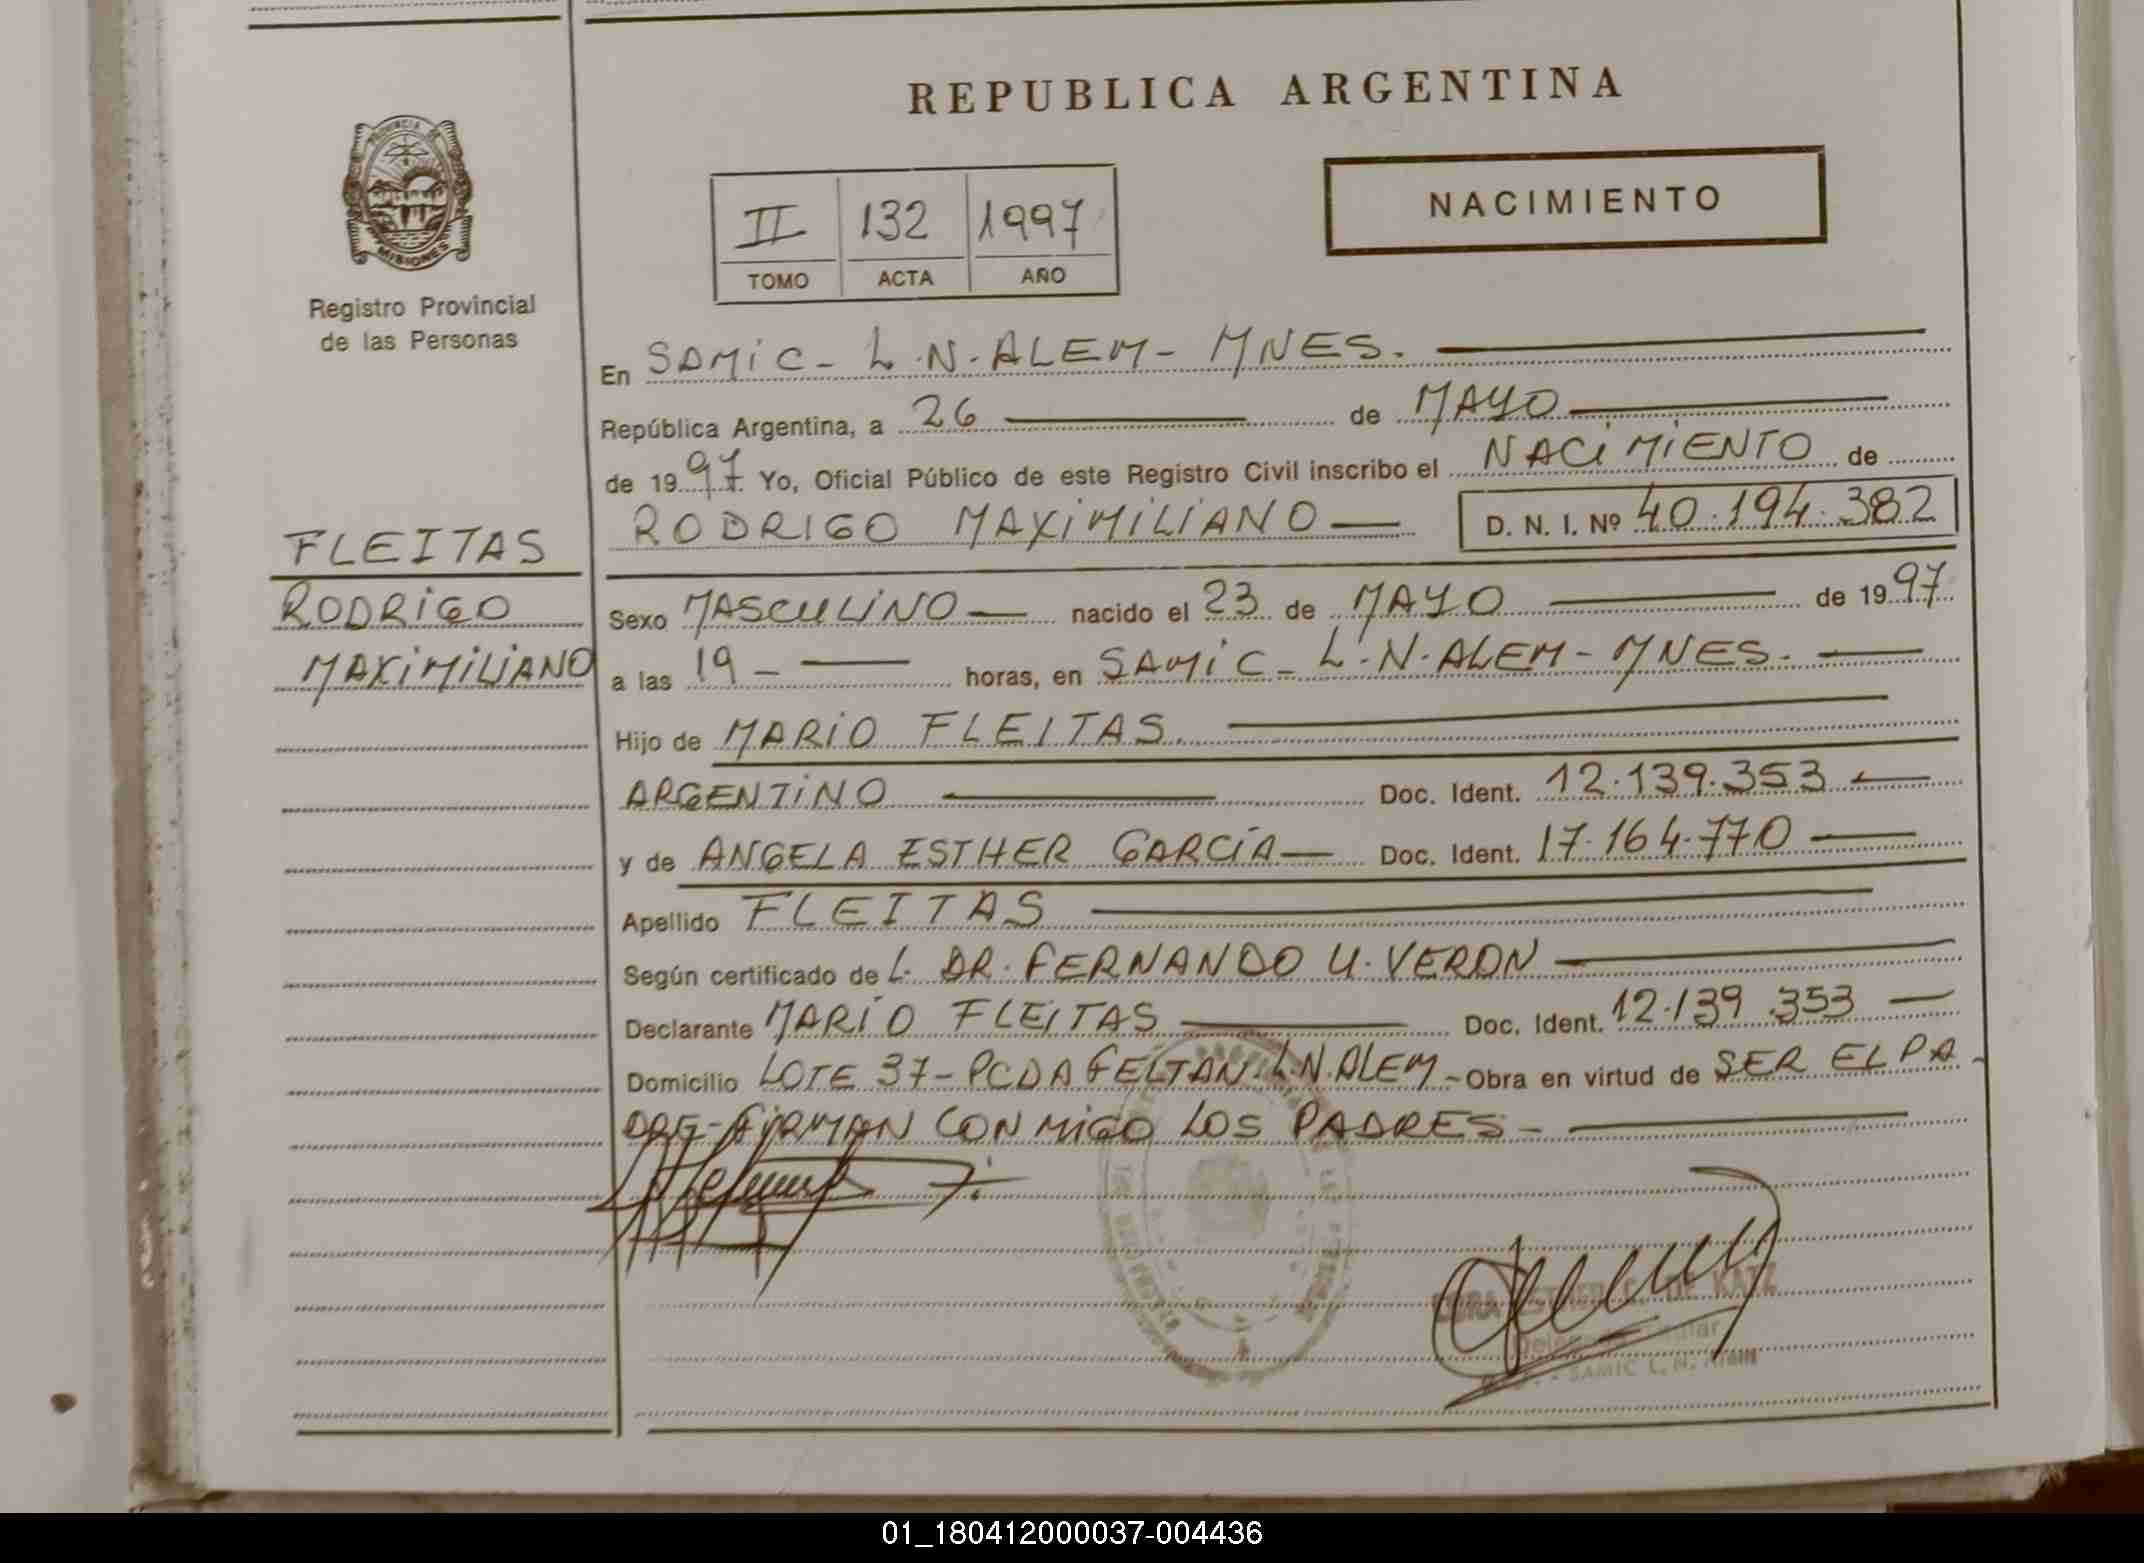 REPUBLICA ARGENTINA
PROVINCIA DE
MISIONES
Registro Provincial
de las Personas
II 132 1997
TOMO ACTA AÑO
NACIMIENTO
En SAMIC - L.N. ALEM - MNES.
República Argentina, a 26 de MAYO
de 1997 Yo, Oficial Público de este Registro Civil inscribo el NACIMIENTO de
RODRIGO MAXIMILIANO D. N. I. Nº 40.194.382
FLEITAS
RODRIGO
MAXIMILIANO
Sexo MASCULINO nacido el 23 de MAYO de 1997
a las 19 - horas, en SAMIC - L.N. ALEM - MNES.
Hijo de MARIO FLEITAS.
ARGENTINO Doc. Ident. 12.139.353
y de ANGELA ESTHER GARCÍA Doc. Ident. 17.164.770
Apellido FLEITAS
Según certificado de L. DR. FERNANDO U. VERON
Declarante MARIO FLEITAS Doc. Ident. 12.139.353
Domicilio LOTE 37 - PCDA GELTAN. L.N. ALEM - Obra en virtud de SER EL PA-
DRE - FIRMAN CONMIGO LOS PADRES -
ESTHER DE KATZ
SAMIC L. N.
01_180412000037-004436